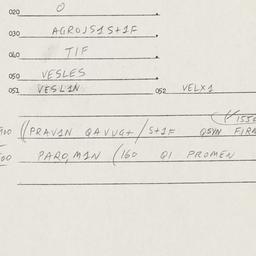 020 O
030 AGROJS1S+1F
040 TIF
050 VESLES
051 VESL1N 052 VELX1
((PRAV1N QAVVG+/S+1F QSYN FIRA
PARO,M1N (160 Q1 PROMEN